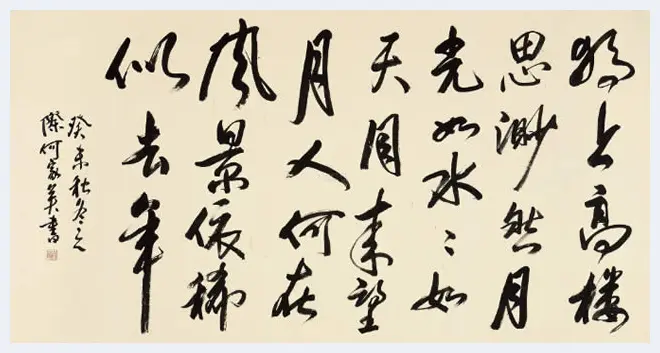 独上高楼
思渺然月
光如水〻如
天同来望
月人何在
風景依稀
似去年
癸未秋冬之
際何家英書